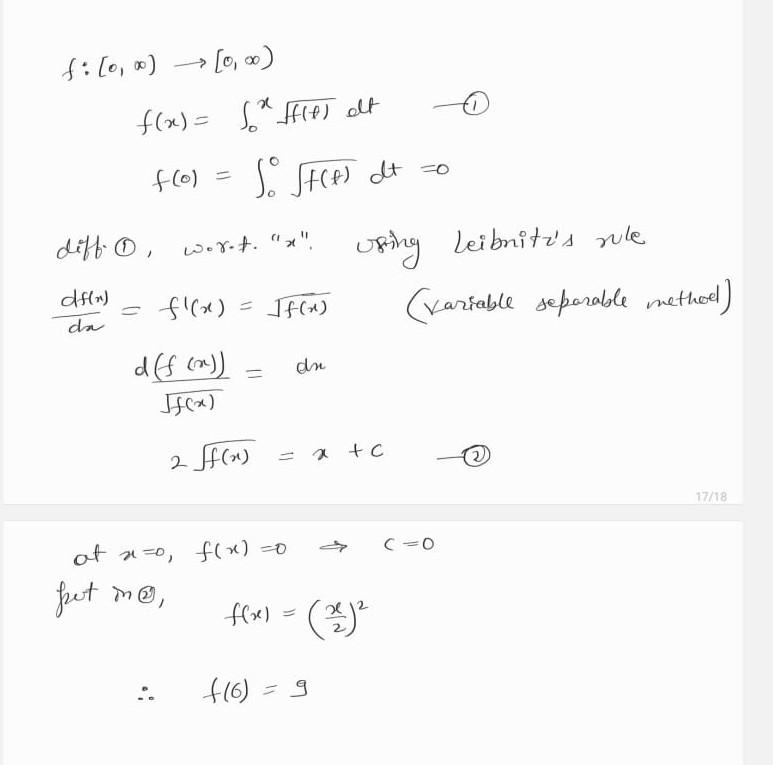 f : [0, ∞) → [0, ∞)
f(x) = ∫₀ˣ √f(t) dt —①
f(0) = ∫₀⁰ √f(t) dt = 0
diff. ①, w.r.t. "x". using Leibnitz's rule
df(x)/dx = f'(x) = √f(x) (variable separable method)
d(f(x))/√f(x) = dx
2√f(x) = x + c —②
17/18
at x=0, f(x)=0 ⇒ c=0
put in ②, f(x) = (x/2)²
∴ f(6) = 9